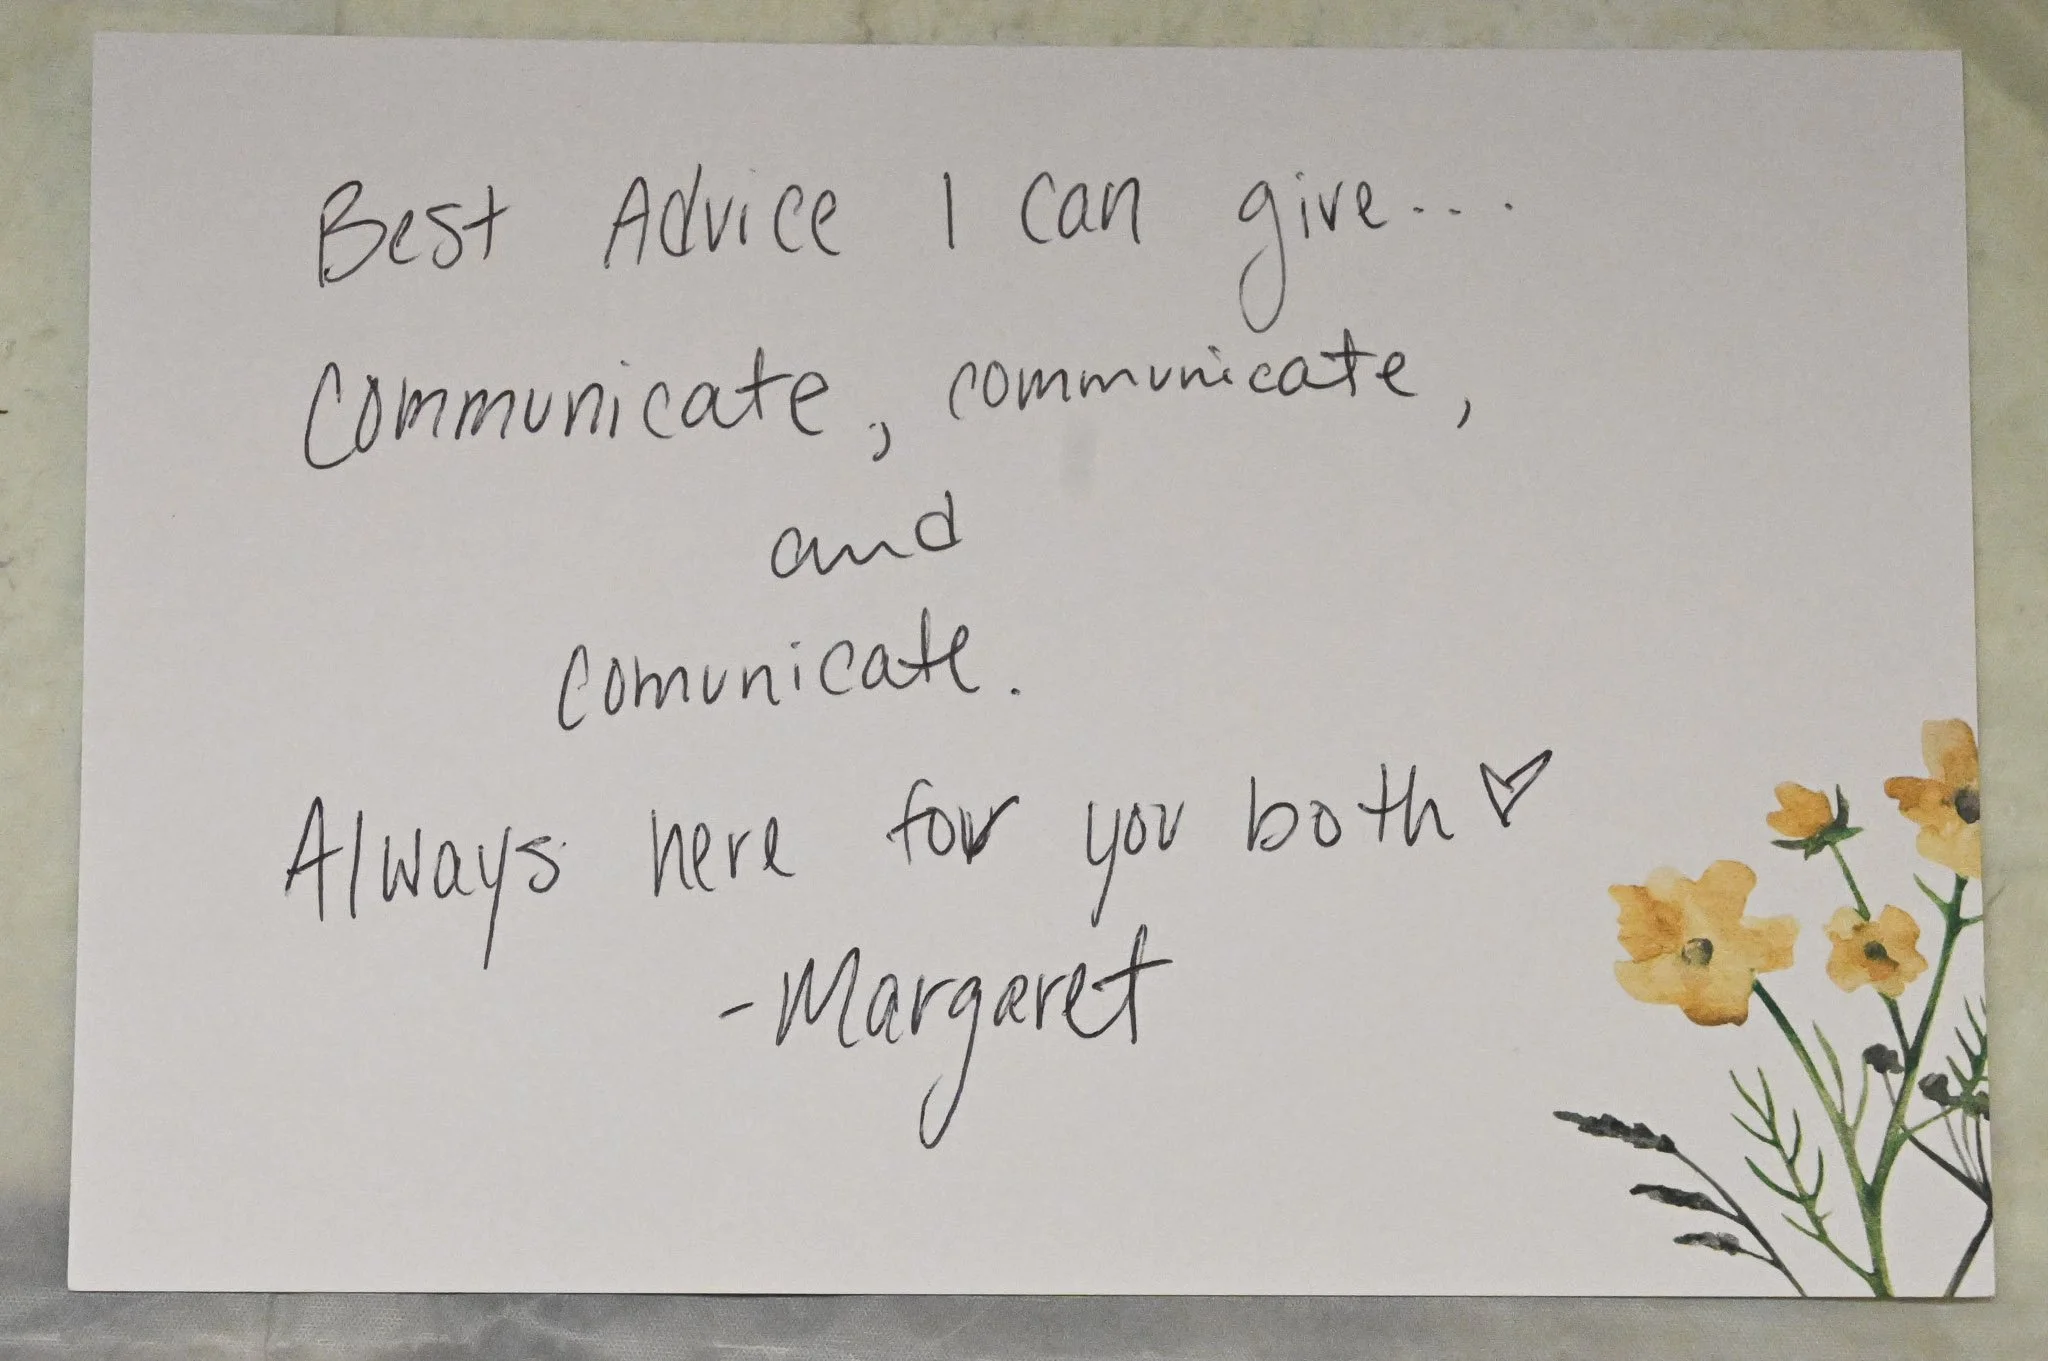 Best Advice I can give....
Communicate, communicate,
and
comunicate.
Always here for you both ♡
-Margaret